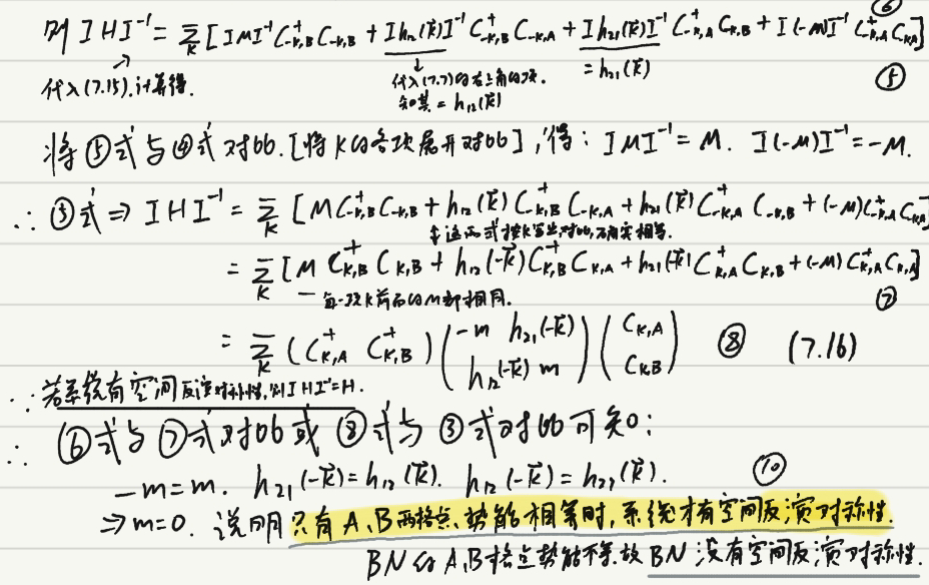 ⑥
则 IHI⁻¹ = Σ_k [ IMI⁻¹ C⁺_{-k,B} C_{-k,B} + I h₁₂(k⃗) I⁻¹ C⁺_{-k,B} C_{-k,A} + I h₂₁(k⃗) I⁻¹ C⁺_{-k,A} C_{k,B} + I(-M)I⁻¹ C⁺_{k,A} C_{k,A} ]
代入(7.15).计算得. 代入(7.7)的右上角的项. = h₂₁(k⃗) ⑤
知其 = h₁₂(k⃗)
将⑤式与④式对比.[将k的各项展开对比],得: IMI⁻¹ = M. I(-M)I⁻¹ = -M.
∴ ③式 ⇒ IHI⁻¹ = Σ_k [ M C⁺_{-k,B} C_{-k,B} + h₁₂(k⃗) C⁺_{-k,B} C_{-k,A} + h₂₁(k⃗) C⁺_{-k,A} C_{-k,B} + (-M) C⁺_{-k,A} C_{-k,A} ]
这两式按k
= Σ_k [ M C⁺_{k,B} C_{k,B} + h₁₂(-k⃗) C⁺_{k,B} C_{k,A} + h₂₁(-k⃗) C⁺_{k,A} C_{k,B} + (-M) C⁺_{k,A} C_{k,A} ]
每一项k前面的M都相同. ⑦
= Σ_k ( C⁺_{k,A} C⁺_{k,B} ) ( -m h₂₁(-k⃗) ; h₁₂(-k⃗) m ) ( C_{k,A} ; C_{k,B} ) ⑧ (7.16)
∵ 若系统有空间反演对称性,则IHI⁻¹=H.
∴ ⑥式与⑦式对比或⑧式与③式对比可知:
-m = m. h₂₁(-k⃗) = h₁₂(k⃗). h₁₂(-k⃗) = h₂₁(k⃗). ⑩
⇒ m=0. 说明只有A、B两格点势能相等时,系统才有空间反演对称性.
BN的A,B格点势能不等.故BN没有空间反演对称性.